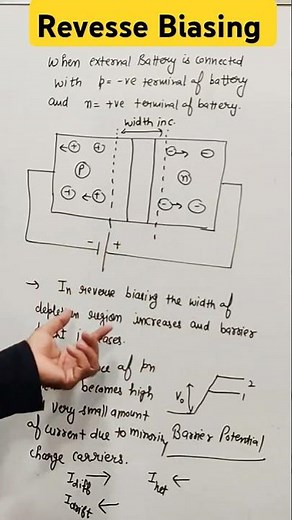 Revesse Biasing
When external Battery is connected
with p= -ve terminal of battery
and n= +ve terminal of battery.
width inc.
p
n
- +
→ In reverse biasing the width of
region increases and barrier
of pn
becomes high
very small amount
of current due to minority
charge carriers.
V₀
2
1
Barrier Potential
I diff → I net ←
I drift ←